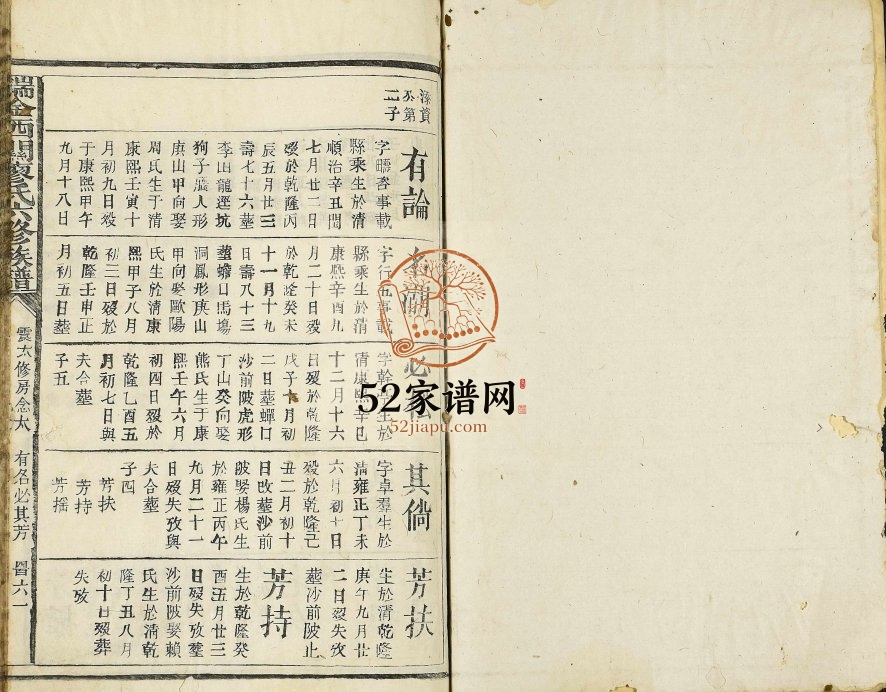 深質
公第
二子
有論
字疇咨事載
縣乘生於清
順治辛丑閏
七月廿二日
殁於乾隆丙
辰五月廿三
壽七十六塟
李田龍逕坑
狗子腦人形
庚山甲向娶
周氏生于清
康熙壬寅十
月初九日殁
于康熙甲午
九月十八日
字行五事載
縣乘生於清
康熙辛酉九
月二十日殁
於乾隆癸未
十一月十九
日壽八十三
塟蟾口馬塲
洞鳳形庚山
甲向娶歐陽
氏生於清康
熙甲子八月
初三日殁於
乾隆壬申正
月初五日塟
必
字幹
生於
清康熙辛巳
十二月十六
日殁於乾隆
戊子十月初
二日塟蟬口
沙前陂虎形
丁山癸向娶
熊氏生于康
熙壬午六月
初四日殁於
乾隆乙酉五
月初七日與
夫合塟
子五
其倘
字卓羣生於
清雍正丁未
六月初十日
殁於乾隆己
丑二月初十
日改塟沙前
陂娶楊氏生
於雍正丙午
九月二十一
日殁失攷與
夫合塟
子四
芳扶
芳持
芳搖
芳扶
生於清乾隆
庚午九月廿
二日殁失攷
塟沙前陂止
芳持
生於乾隆癸
酉五月廿三
日殁失攷塟
沙前陂娶賴
氏生於清乾
隆丁丑八月
初十日殁葬
失攷
瑞金西關廖氏六修族譜
雲太修房念太
有名必其芳
六一
52家谱网
52jiapu.com